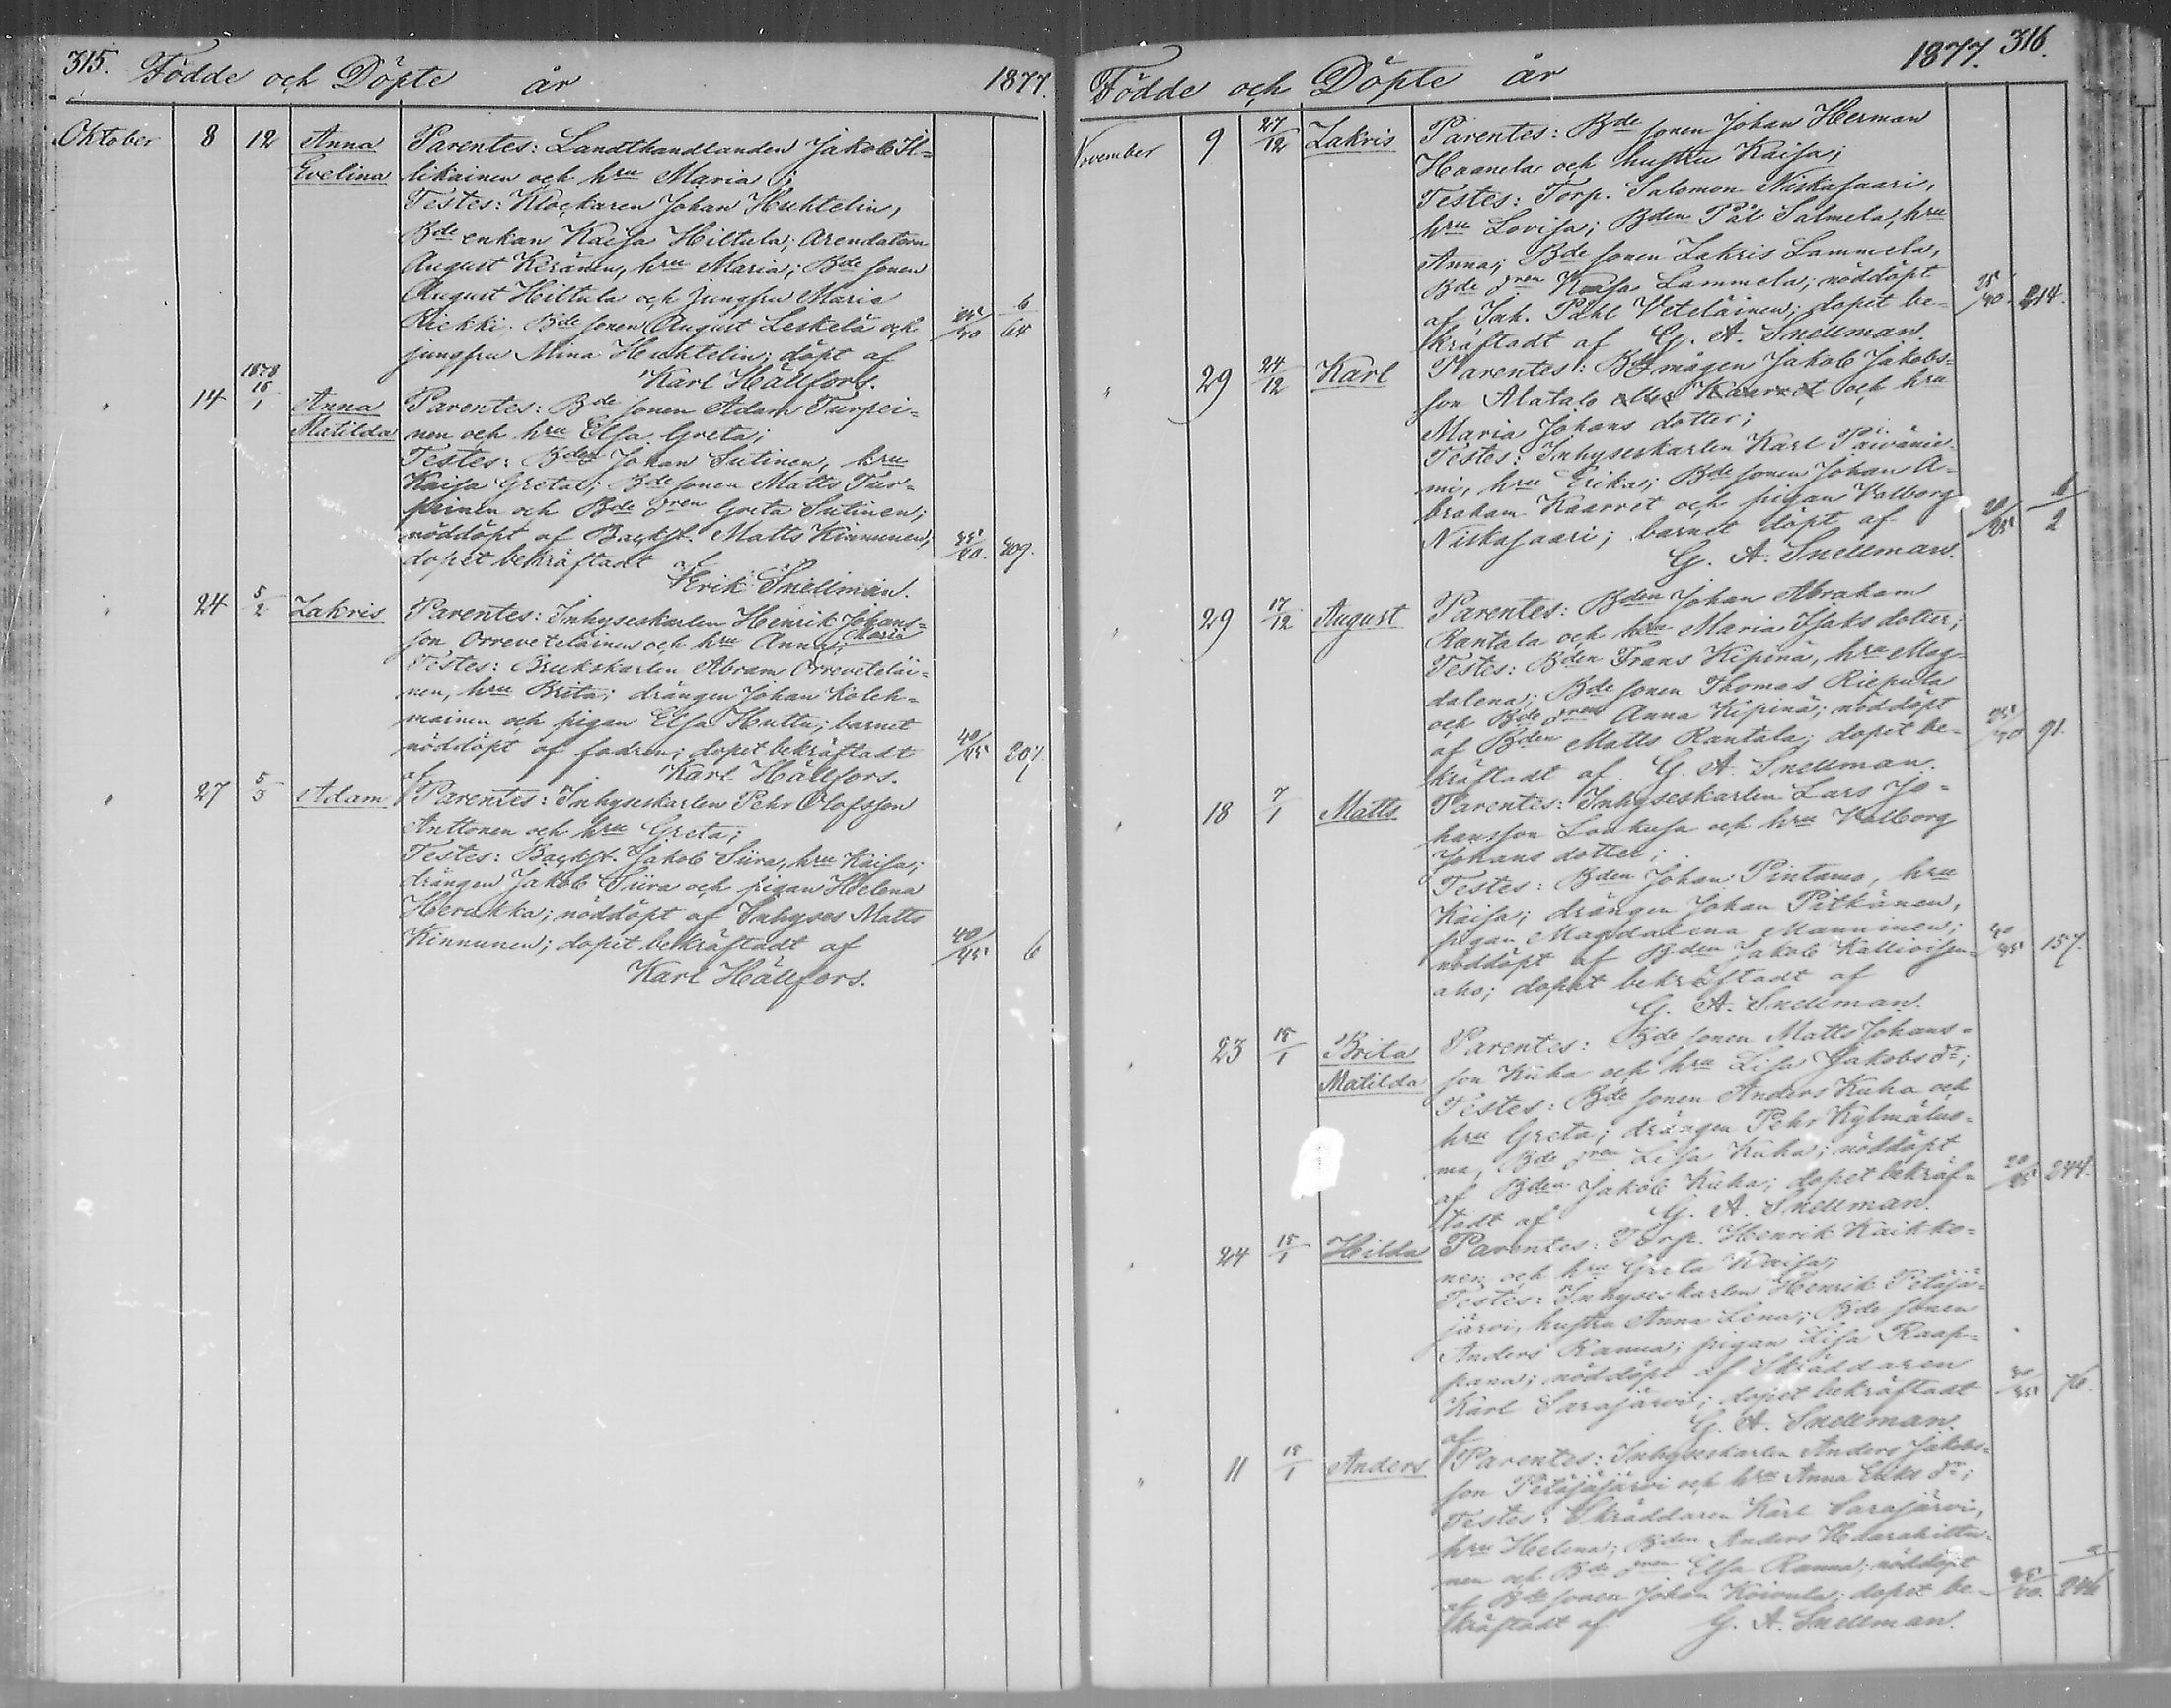 315. Födde och Döpte år 1877.
Oktober 8 12 Anna Evelina Parentes: Landthandlanden Jakob Il=
likainen och hru Maria;
Testes: Klockaren Johan Huhtelin,
Bde enkan Kaisa Hiltula; Arendatorn
August Keränen, hru Maria; Bde sonen
August Hiltula och Jungfru Maria
Riekki. Bde sonen August Leskelä och
jungfru Mina Huhtelin; döpt af 6/64
Karl Hällfors.
14 1878 15/1 Anna Matilda Parentes: Bde sonen Adam Turpei=
nen och hru Elsa Greta;
Testes: Bden Johan Sutinen, hru
Kaisa Greta; Bde sonen Matts Tur=
peinen och Bde dren Greta Sutinen;
nöddöpt af Backst. Matts Kinnunen, 35/40. 309.
dopet bekräftadt af
Erik Snellman.
24 5/2 Zakris Parentes: Inhyseskarlen Henrik Johans=
son Orreveteläinen och hru Anna Maria;
Testes: Brukskarlen Abram Orrevetelai=
nen, hru Brita; drängen Johan Koleh=
mainen och pigan Elsa Huttu; barnet
nöddöpt af fadren; dopet bekräftadt 40/45 207.
af Karl Hällfors.
27 5/3 Adam Parentes: Inhyseskarlen Pehr Olofsson
Anttonen och hru Greta;
Testes: Backst. Jakob Siira, hru Kaisa;
drängen Jakob Siira och pigan Helena
Herukka; nöddöpt af Inhyses Matts
Kinnunen; dopet bekräftadt af 40/45 6
Karl Hällfors.
Födde och Döpte år 1877. 316.
November 9 27/12 Zakris Parentes: Bde sonen Johan Herman
Haanela och hustru Kaisa;
Testes: Torp. Salomon Niskasaari,
hru Lovisa; Bden Pål Salmela, hru
Anna; Bde sonen Zakris Lammela,
Bde dren Kaisa Lammela; nöddöpt
af Inh. Påhl Veteläinen; dopet be= 214.
kräftadt af G. A. Snellman.
" 29 24/12 Karl Parentes: Bdemågen Jakob Jakobs=
son Alatalo eller Kaarret och hru
Maria Johans dotter;
Testes: Inhyseskarlen Karl Päivänie=
mi, hru Erika; Bde sonen Johan A=
braham Kaarret och pigan Valborg
Niskasaari; barnet döpt af
G. A. Snellman.
" 29 17/12 August Parentes: Bden Johan Abraham
Rantala och hru Maria Isaks dotter;
Testes: Bden Frans Kipinä, hru Mag=
dalena; Bde sonen Thomas Riepula
och Bde dren Anna Kipinä; nöddöpt
af Bden Matts Rantala; dopet be= 91.
kräftadt af G. A. Snellman.
" 18 7/1 Matts Parentes: Inhyseskarlen Lars Jo=
hansson Loukusa och hru Valborg
Johans dotter;
Testes: Bden Johan Pintamo, hru
Kaisa; drängen Johan Pitkänen,
pigan Magdalena Manninen;
nöddöpt af Bden Jakob Kallioisen= 157.
aho; dopet bekräftadt af
G. A. Snellman.
" 23 15/1 Brita Matilda Parentes: Bde sonen Matts Johans=
son Kuha och hru Lisa Jakobs dr;
Testes: Bde sonen Anders Kuha och
hru Greta; drängen Pehr Kylmäluo=
ma, Bde dren Lisa Kuha; nöddöpt
af Bden Jakob Kuha; dopet bekräf= 244.
tadt af G. A. Snellman.
" 24 15/1 Hilda Parentes: Torp. Henrik Kaikko=
nen och hru Greta Kaisa;
Testes: Inhyseskarlen Henrik Petäjä=
järvi, hustru Anna Lena; Bde sonen
Anders Ranua; pigan Lisa Raap=
pana; nöddöpt af Skräddaren
Karl Sarajärvi; dopet bekräftadt 76.
af G. A. Snellman.
" 11 15/1 Anders Parentes: Inhyseskarlen Anders Jakobs=
son Petäjäjärvi och hru Anna Eriks dr;
Testes: Skräddaren Karl Sarajärvi,
hru Helena; Bden Anders
nen och Bde dren Elsa Ranua; nöddöpt
af Bde sonen Johan Koivula; dopet be=
kräftadt af G. A. Snellman.